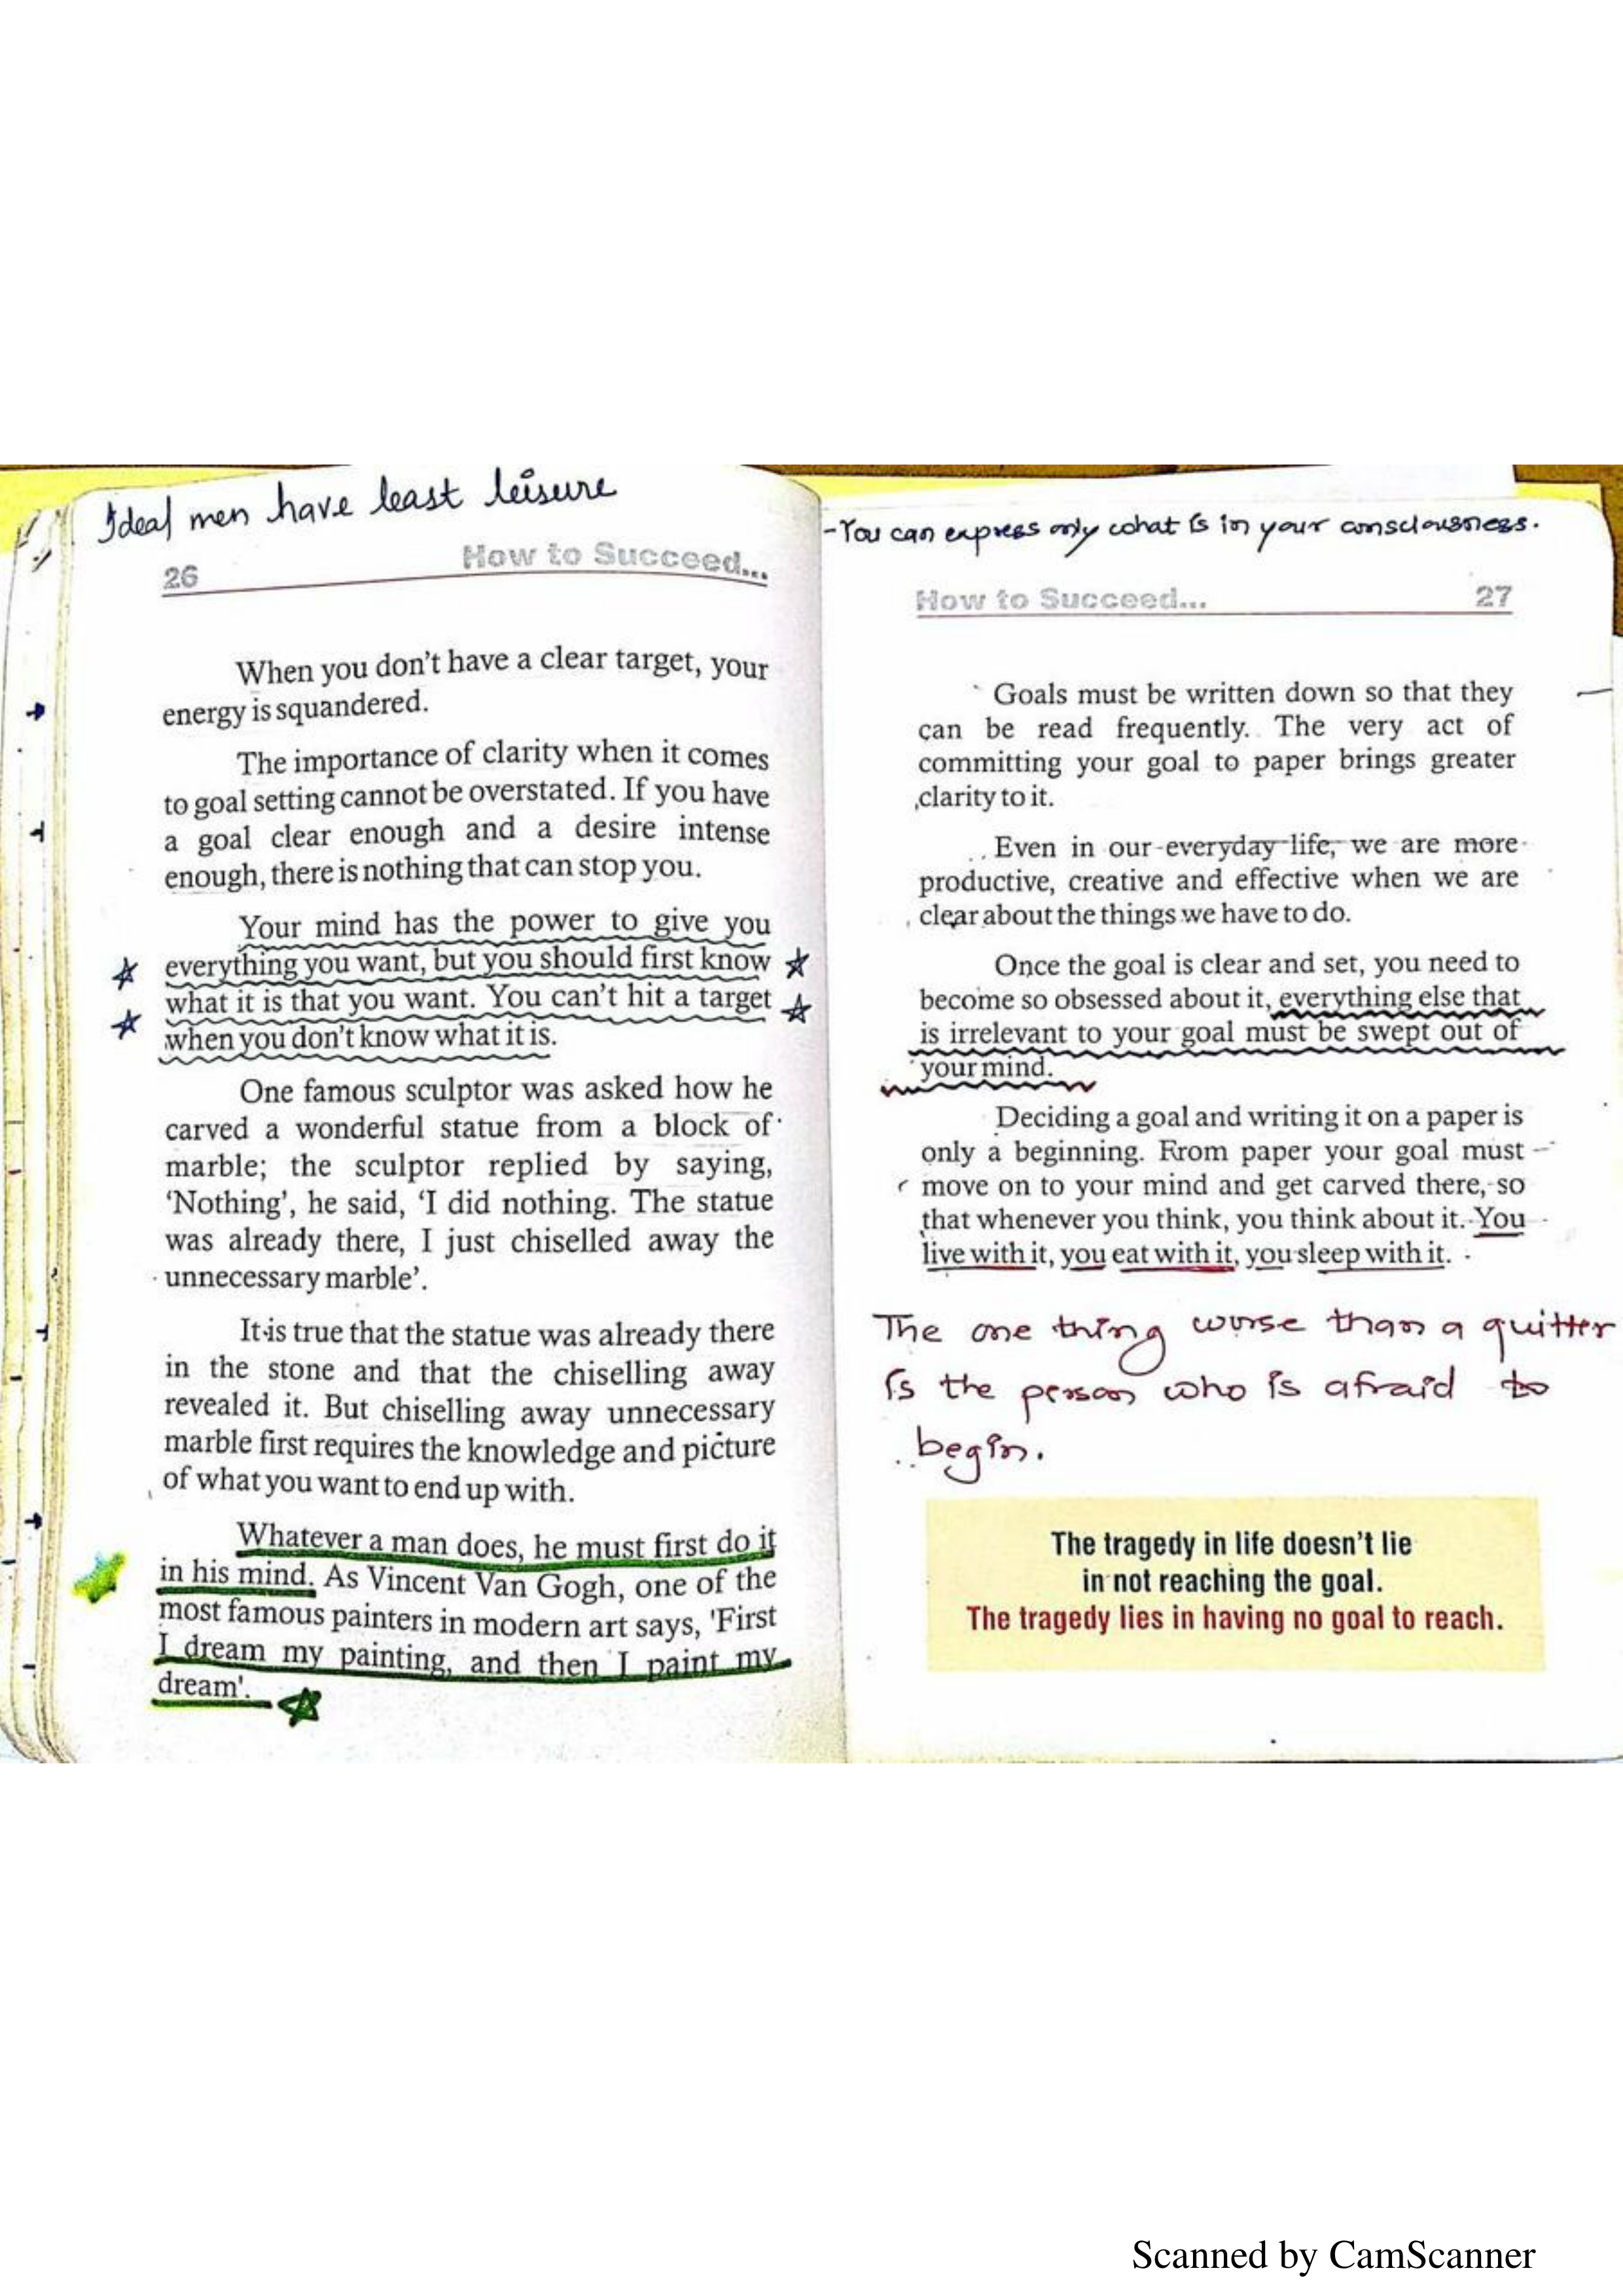 Ideal men have least leisure
26 How to Succeed...
When you don't have a clear target, your
energy is squandered.
The importance of clarity when it comes
to goal setting cannot be overstated. If you have
a goal clear enough and a desire intense
enough, there is nothing that can stop you.
Your mind has the power to give you
everything you want, but you should first know
what it is that you want. You can't hit a target
when you don't know what it is.
One famous sculptor was asked how he
carved a wonderful statue from a block of
marble; the sculptor replied by saying,
‘Nothing’, he said, ‘I did nothing. The statue
was already there, I just chiselled away the
unnecessary marble’.
It is true that the statue was already there
in the stone and that the chiselling away
revealed it. But chiselling away unnecessary
marble first requires the knowledge and picture
of what you want to end up with.
Whatever a man does, he must first do it
in his mind. As Vincent Van Gogh, one of the
most famous painters in modern art says, 'First
I dream my painting, and then I paint my
dream'.
-You can express only what is in your consciousness.
How to Succeed... 27
Goals must be written down so that they
can be read frequently. The very act of
committing your goal to paper brings greater
clarity to it.
Even in our everyday life, we are more
productive, creative and effective when we are
clear about the things we have to do.
Once the goal is clear and set, you need to
become so obsessed about it, everything else that
is irrelevant to your goal must be swept out of
your mind.
Deciding a goal and writing it on a paper is
only a beginning. From paper your goal must
move on to your mind and get carved there, so
that whenever you think, you think about it. You
live with it, you eat with it, you sleep with it.
The one thing worse than a quitter
is the person who is afraid to
begin.
The tragedy in life doesn't lie
in not reaching the goal.
The tragedy lies in having no goal to reach.
Scanned by CamScanner